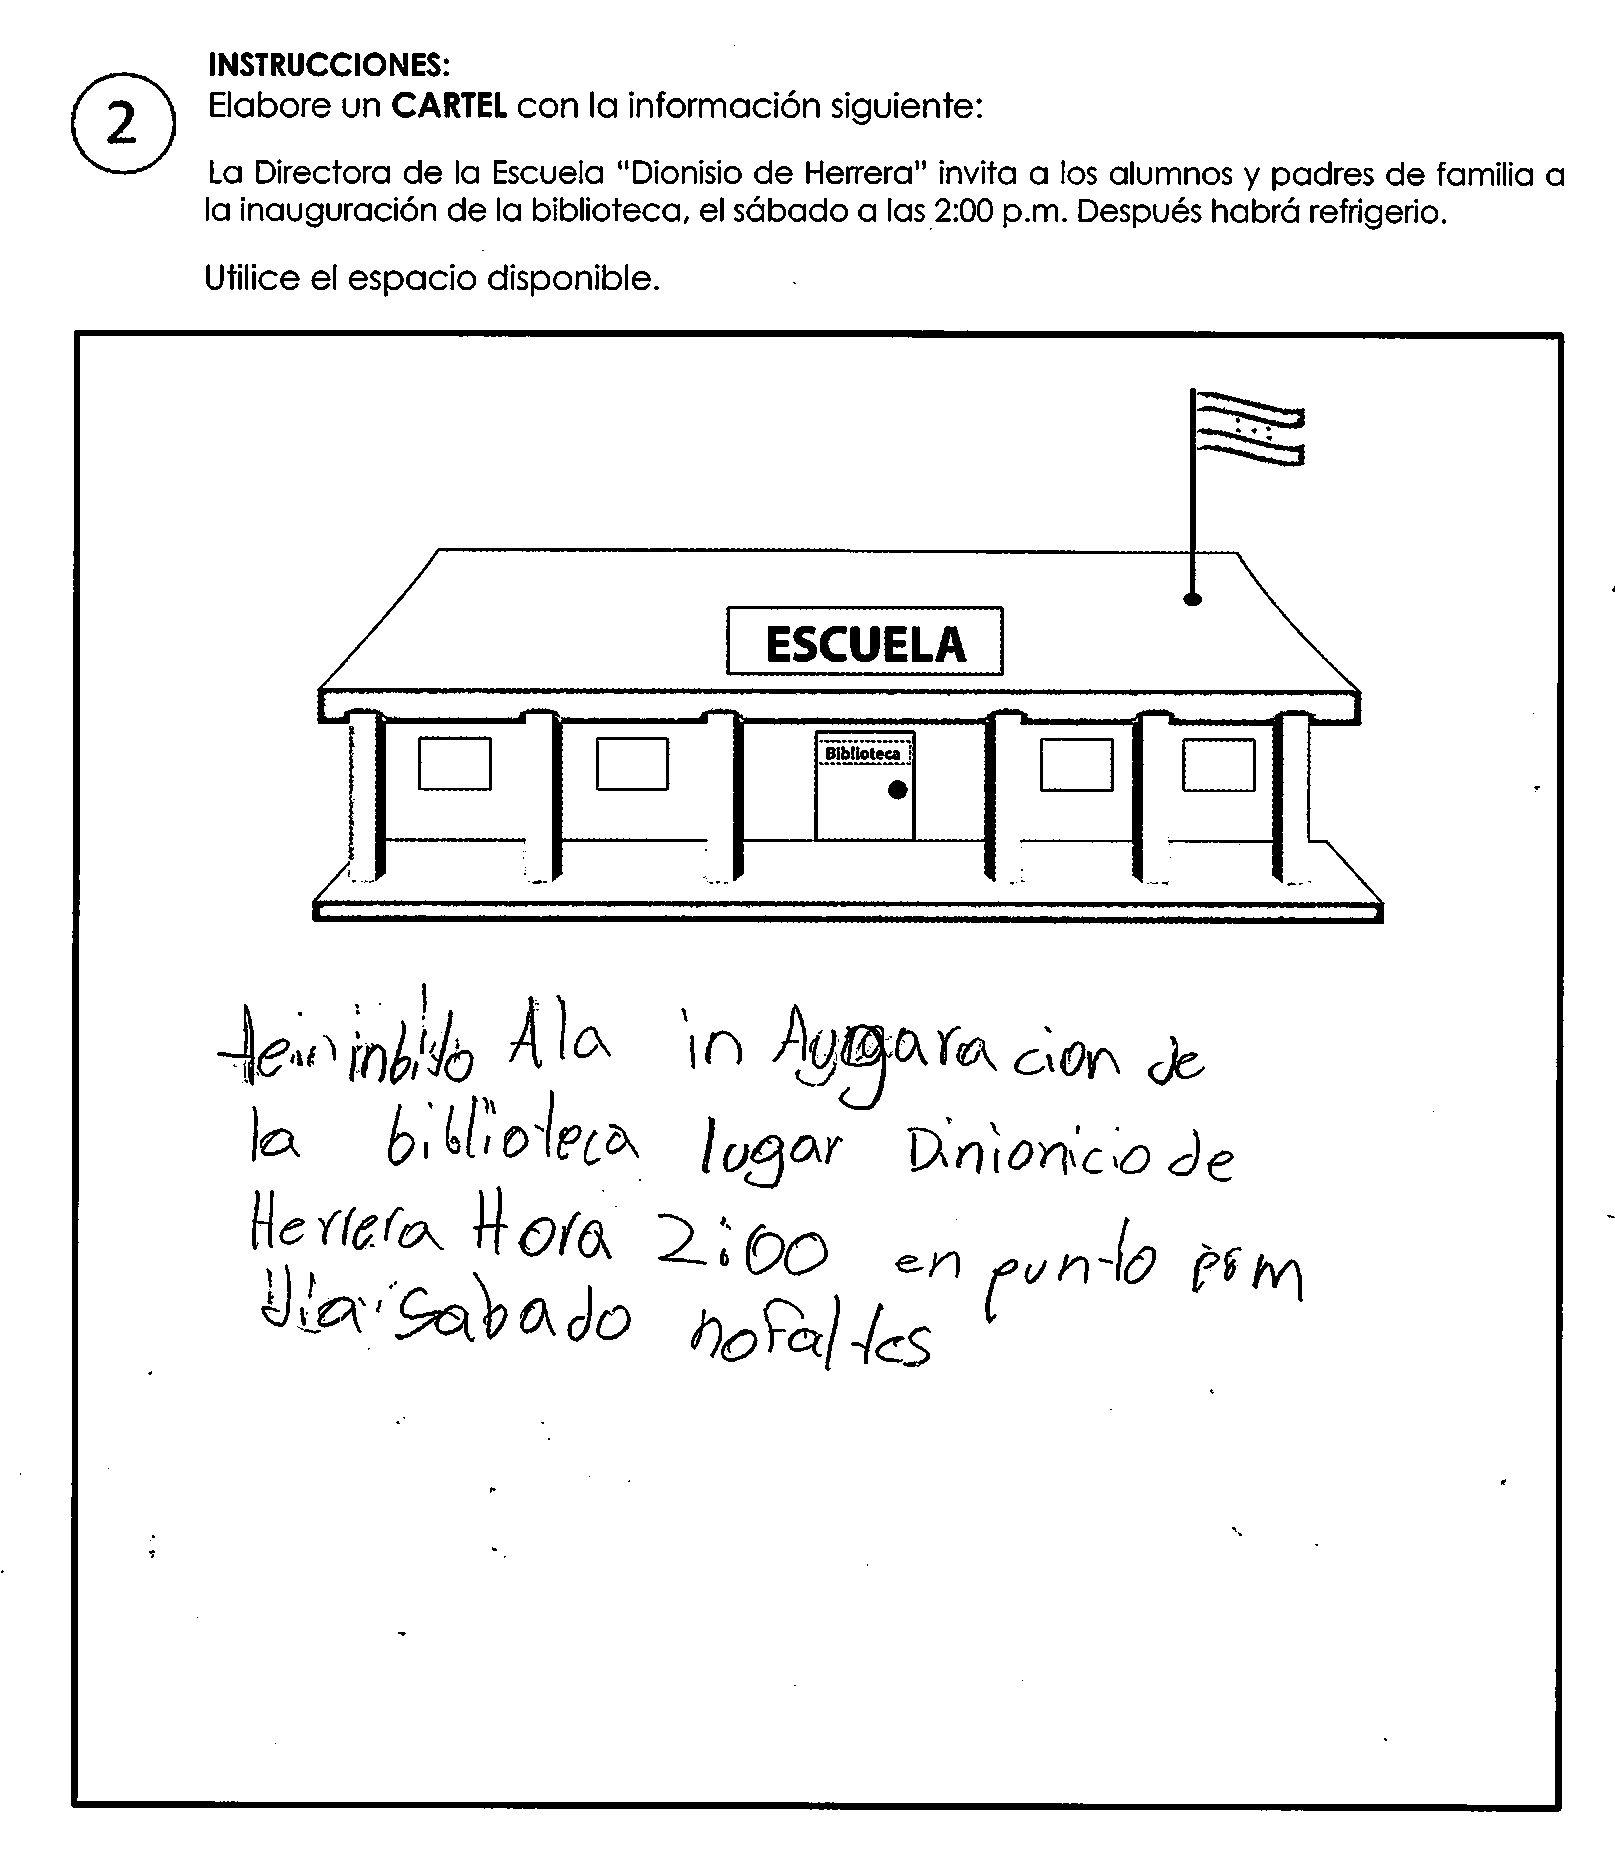 INSTRUCCIONES:
2
Elabore un CARTEL con la información siguiente:
La Directora de la Escuela "Dionisio de Herrera" invita a los alumnos y padres de familia a
la inauguración de la biblioteca, el sábado a las 2:00 p.m. Después habrá refrigerio.
Utilice el espacio disponible.
ESCUELA
Biblioteca
inbito A la in Auygaracion de
la biblioteca lugar Dinionicio de
Herrera Hora 2:00 en punto
dia sabado nofaltes